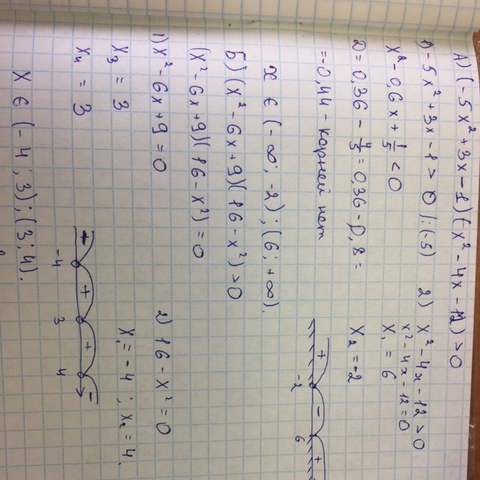 А) (-5x²+3x-1)(x²-4x-12)>0
1) -5x²+3x-1>0 |:(-5)
x²-0,6x+1/5<0
D=0,36-4/5=0,36-0,8=
=-0,44 - корней нет
2) x²-4x-12>0
x²-4x-12=0
x₁=6
x₂=-2
+ - +
-2 6
x∈(-∞;-2);(6;+∞).
Б) (x²-6x+9)(16-x²)>0
(x²-6x+9)(16-x²)=0
1) x²-6x+9=0
x₃=3
x₄=3
2) 16-x²=0
x₁=-4; x₂=4.
+ + -
-4 3 4
x∈(-4;3);(3;4).